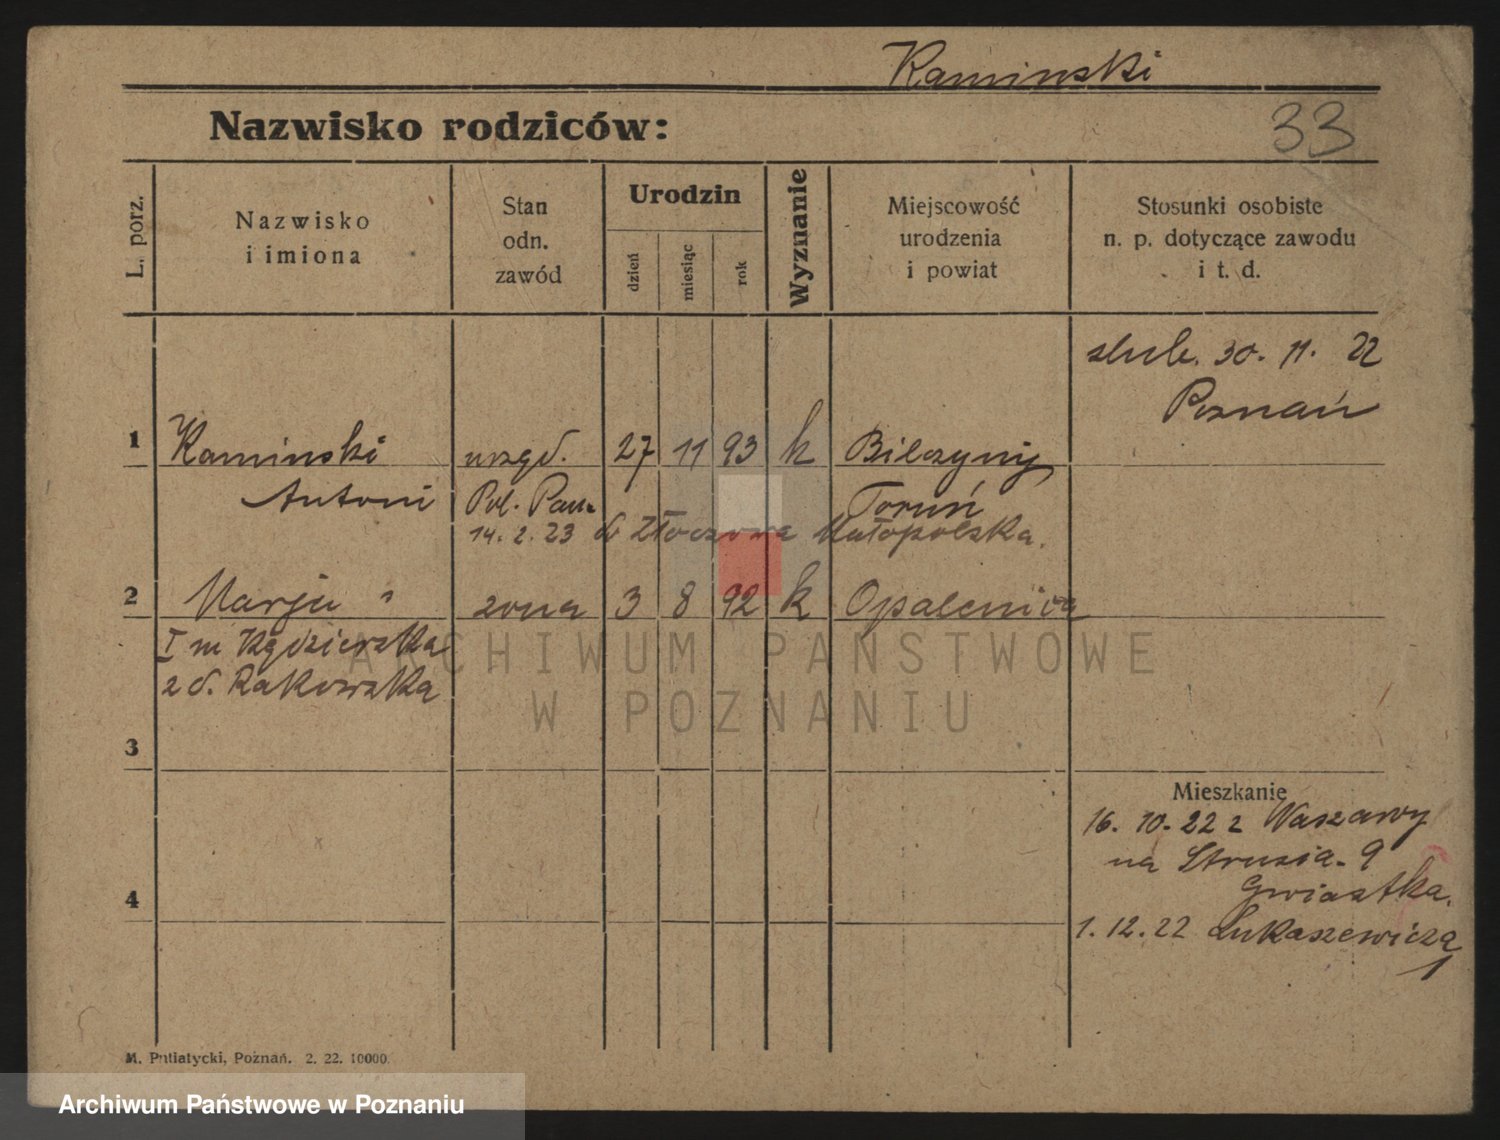 Kaminski
Nazwisko rodziców:
33
L. porz.
Nazwisko
i imiona
Stan
odn.
zawód
Urodzin
dzień
miesiąc
rok
Wyznanie
Miejscowość
urodzenia
i powiat
Stosunki osobiste
n. p. dotyczące zawodu
i t. d.
slub. 30. 11. 22
Poznań
1 Kaminski urzęd. 27 11 93 k
Antoni Pol. Toruń
14. 2. 23 do Złoczowa Małopolska.
2 Marja " zona 3 8 92 k Opalenica
I m Kędzierska
2 d. Rakowska
3
Mieszkanie
16. 10. 22 z Waszawy
na Strusia. 9
Gwiastka.
4
1. 12. 22 Łukaszewicza
1
M. Putiatycki, Poznań. 2. 22. 10000.
ARCHIWUM PAŃSTWOWE
W POZNANIU
Archiwum Państwowe w Poznaniu